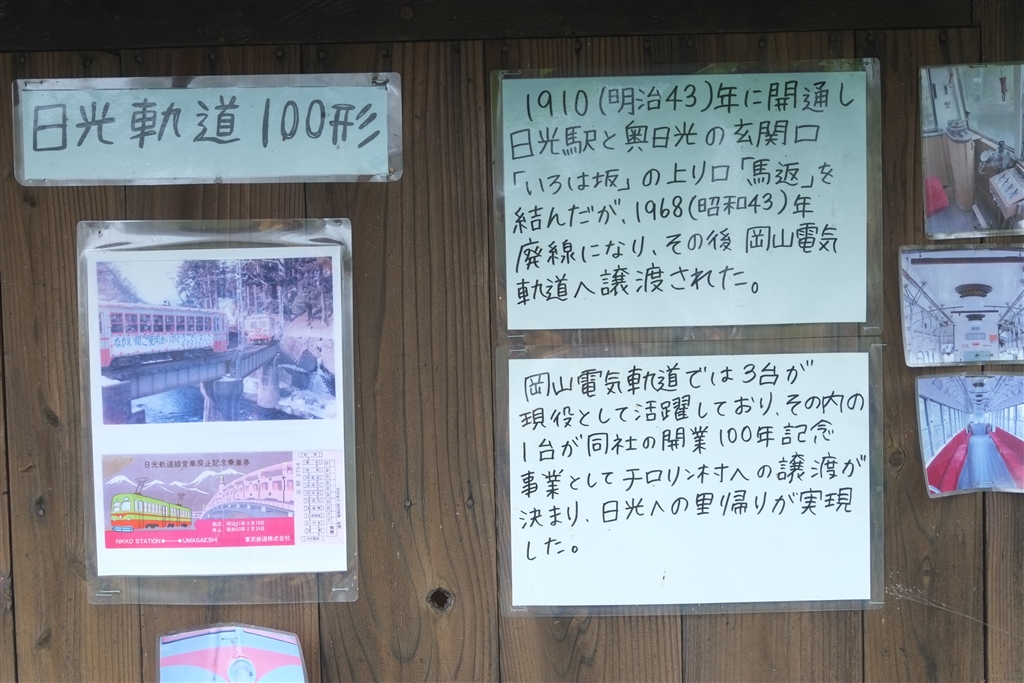 日光軌道100形
1910(明治43)年に開通し
日光駅と奥日光の玄関口
「いろは坂」の上り口「馬返」を
結んだが、1968(昭和43)年
廃線になり、その後 岡山電気
軌道へ譲渡された。
岡山電気軌道では3台が
現役として活躍しており、その内の
1台が同社の開業100年記念
事業としてチロリン村への譲渡が
決まり、日光への里帰りが実現
した。
日光軌道線営業廃止記念乗車券
NIKKO STATION UMAGAESHI
東武鉄道株式会社